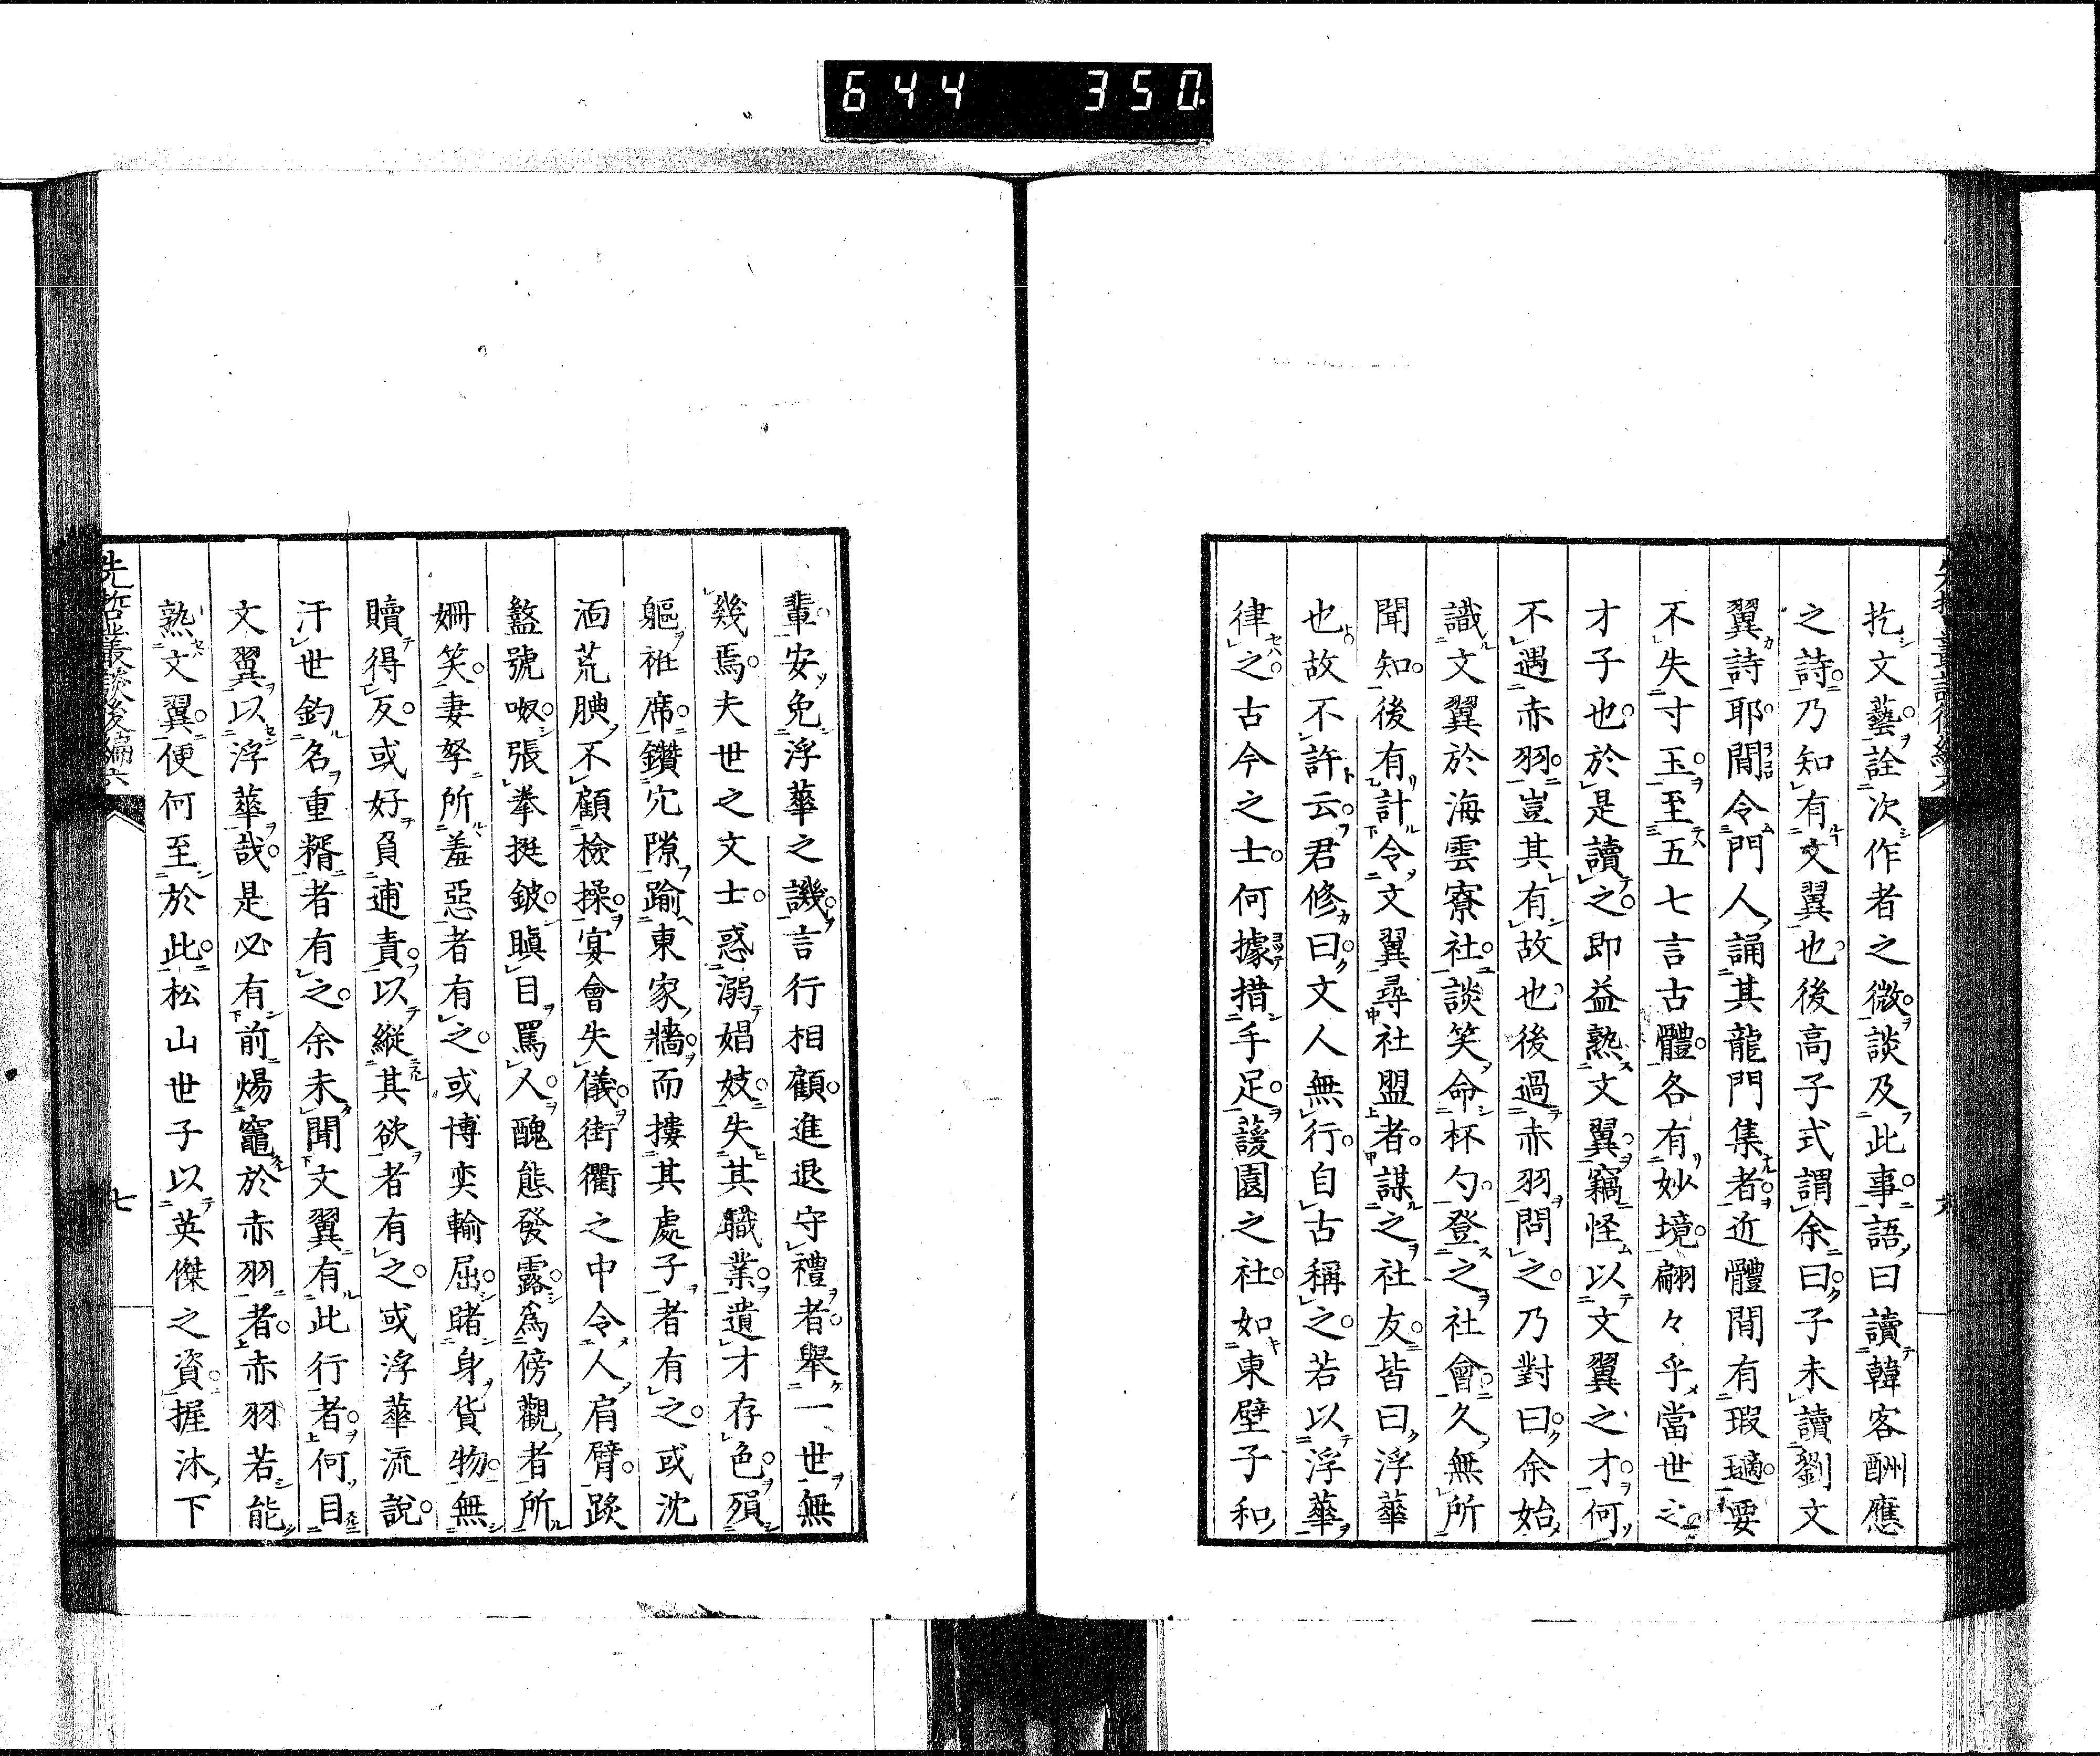 644 350
扢文藝詮次作者之微談及此事語曰讀韓客酬應
之詩乃知有文翼也後高子式謂余曰子未讀劉文
翼詩耶間令門人誦其龍門集者近體間有瑕璃要
不失寸玉至五七言古體各有妙境翩々乎當世之
才子也於是讀之即益熟文翼竊怪以文翼之才何
不遇赤羽豈其有故也後過赤羽問之乃對曰余始
識文翼於海雲寮社談笑命杯勺登之社會久無所
聞知後有計令文翼尋社盟者謀之社友皆曰浮華
也故不許云君修曰文人無行自古稱之若以浮華
律之古今之士何據措手足蘐園之社如東壁子和
輩安免浮華之譏言行相顧進退守禮者舉一世無
幾焉夫世之文士惑溺娼妓失其職業遺才存色殞
軀袵席鑽穴隙踰東家牆而摟其處子者有之或沈
湎荒腆不顧檢操宴會失儀街衢之中令人肩臂踧
盭號呶張拳挺鈹瞋目罵人醜態發露為傍觀者所
姍笑妻孥所羞惡者有之或博奕輸屈賭身貨物無
贖得反或好負逋責以縱其欲者有之或浮華流說
汗世釣名重糈者有之余未聞文翼有此行者何目
文翼以浮華哉是必有前煬竈於赤羽者赤羽若能
熟文翼便何至於此松山世子以英傑之資握沐下
先哲叢談後編六
七